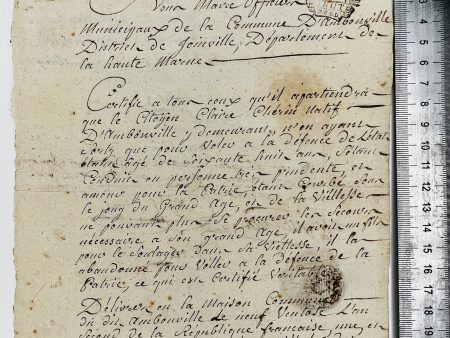 Nous Maire Officiers
Municipaux de la Commune D'ambonville
District de Joinville, Département de
la haute Marne
Certifié a tous ceux qu'il apartiendra
que le Citoyen Claire Cherin natif
D'ambonville y demeurant, n'en ayant
Sorty que pour Voler a la défence de L'état
agé de Soixante huit ans, Setant
Conduit en personne très prudente, et
amour pour la Patrie, étant Courbé Sous
le joug du Grand Age, et de la Viellesse
ne pouvant plus Se procurer les Secours
nécessaire a Son grand Age, il avoit un fils
pour le Soulager dans Sa Viellesse, il la
abandonné pour Voller a la défence de la
Patrie, ce qui est Certifié Veritable
Délivré en la Maison Commune
du dit Ambonville le neuf Ventose L'an
Second de la République francoise, une et